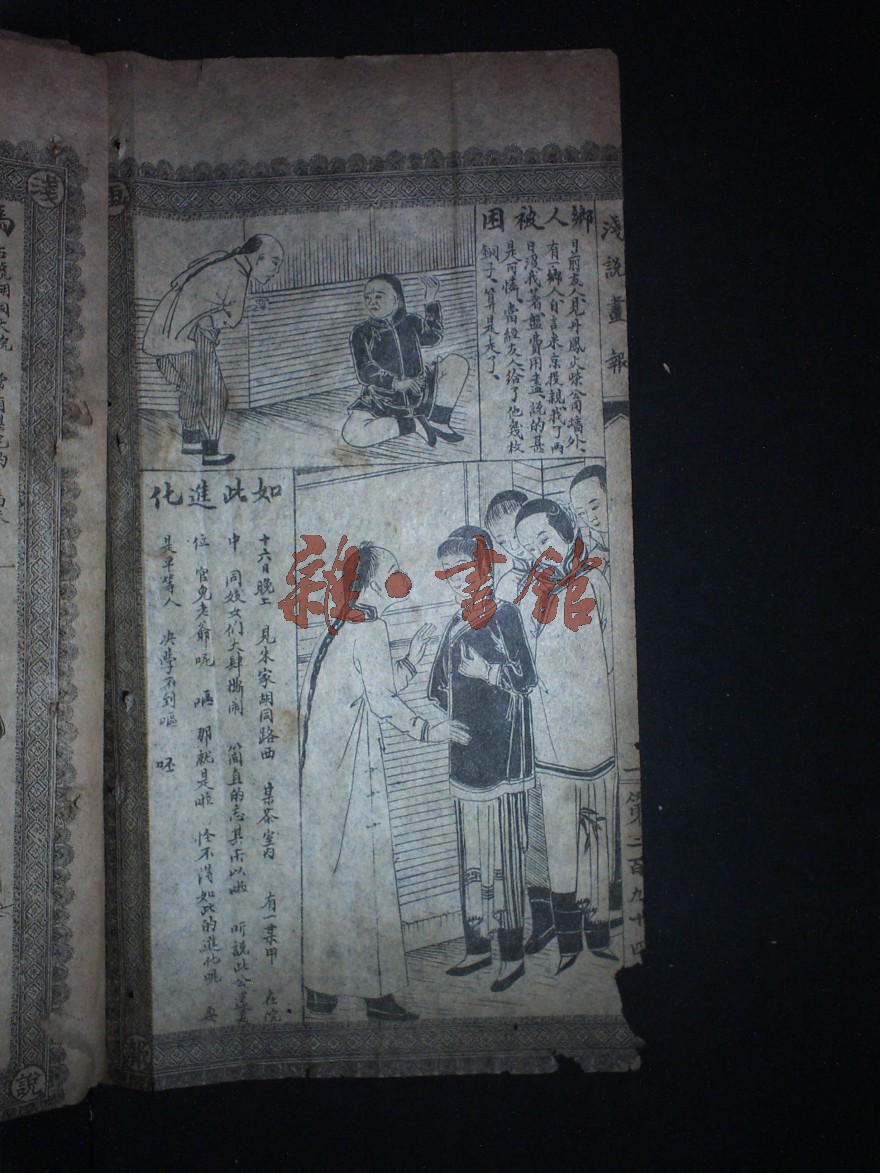 淺說畫報
鄉人被困
日前友人見丹鳳火柴公司墻外、
有一鄉人自言來京投親、找了兩
日沒找着、盤費用盡、說的甚
是可憐、當經友人給了他幾枚
銅子、算是走了、
如此進化
十六日晚上 見朱家胡同路西 某茶室內 有一某甲 在院
中 同妓女們大肆撕鬧 簡直的忘其所以啦 听說此公還是
位 官免老爺呢 嘔 那就是啦 怪不得如此的進化呢 要
是平等人 决學不到嘔 呸
第二百九十四
畫
報
淺
說
雜·書館